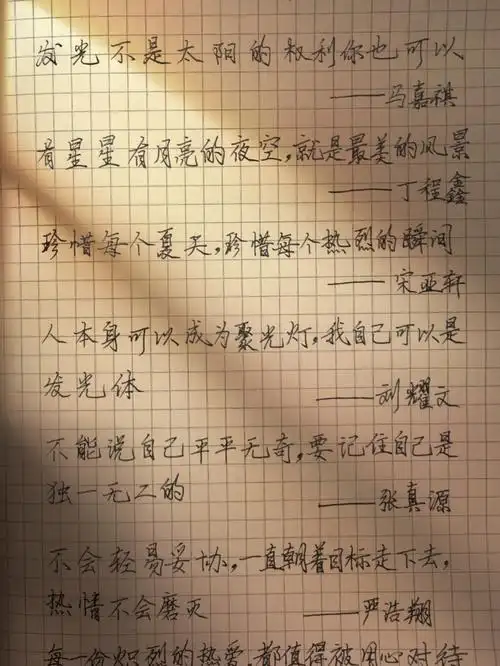 发光不是太阳的权利你也可以
——马嘉祺
有星星有月亮的夜空,就是最美的风景
——丁程鑫
珍惜每个夏天,珍惜每个热烈的瞬间
——宋亚轩
人本身可以成为聚光灯,我自己可以是
发光体
——刘耀文
不能说自己平平无奇,要记住自己是
独一无二的
——张真源
不会轻易妥协,一直朝着目标走下去,
热情不会磨灭
——严浩翔
每一份炽烈的热爱,都值得被用心对待